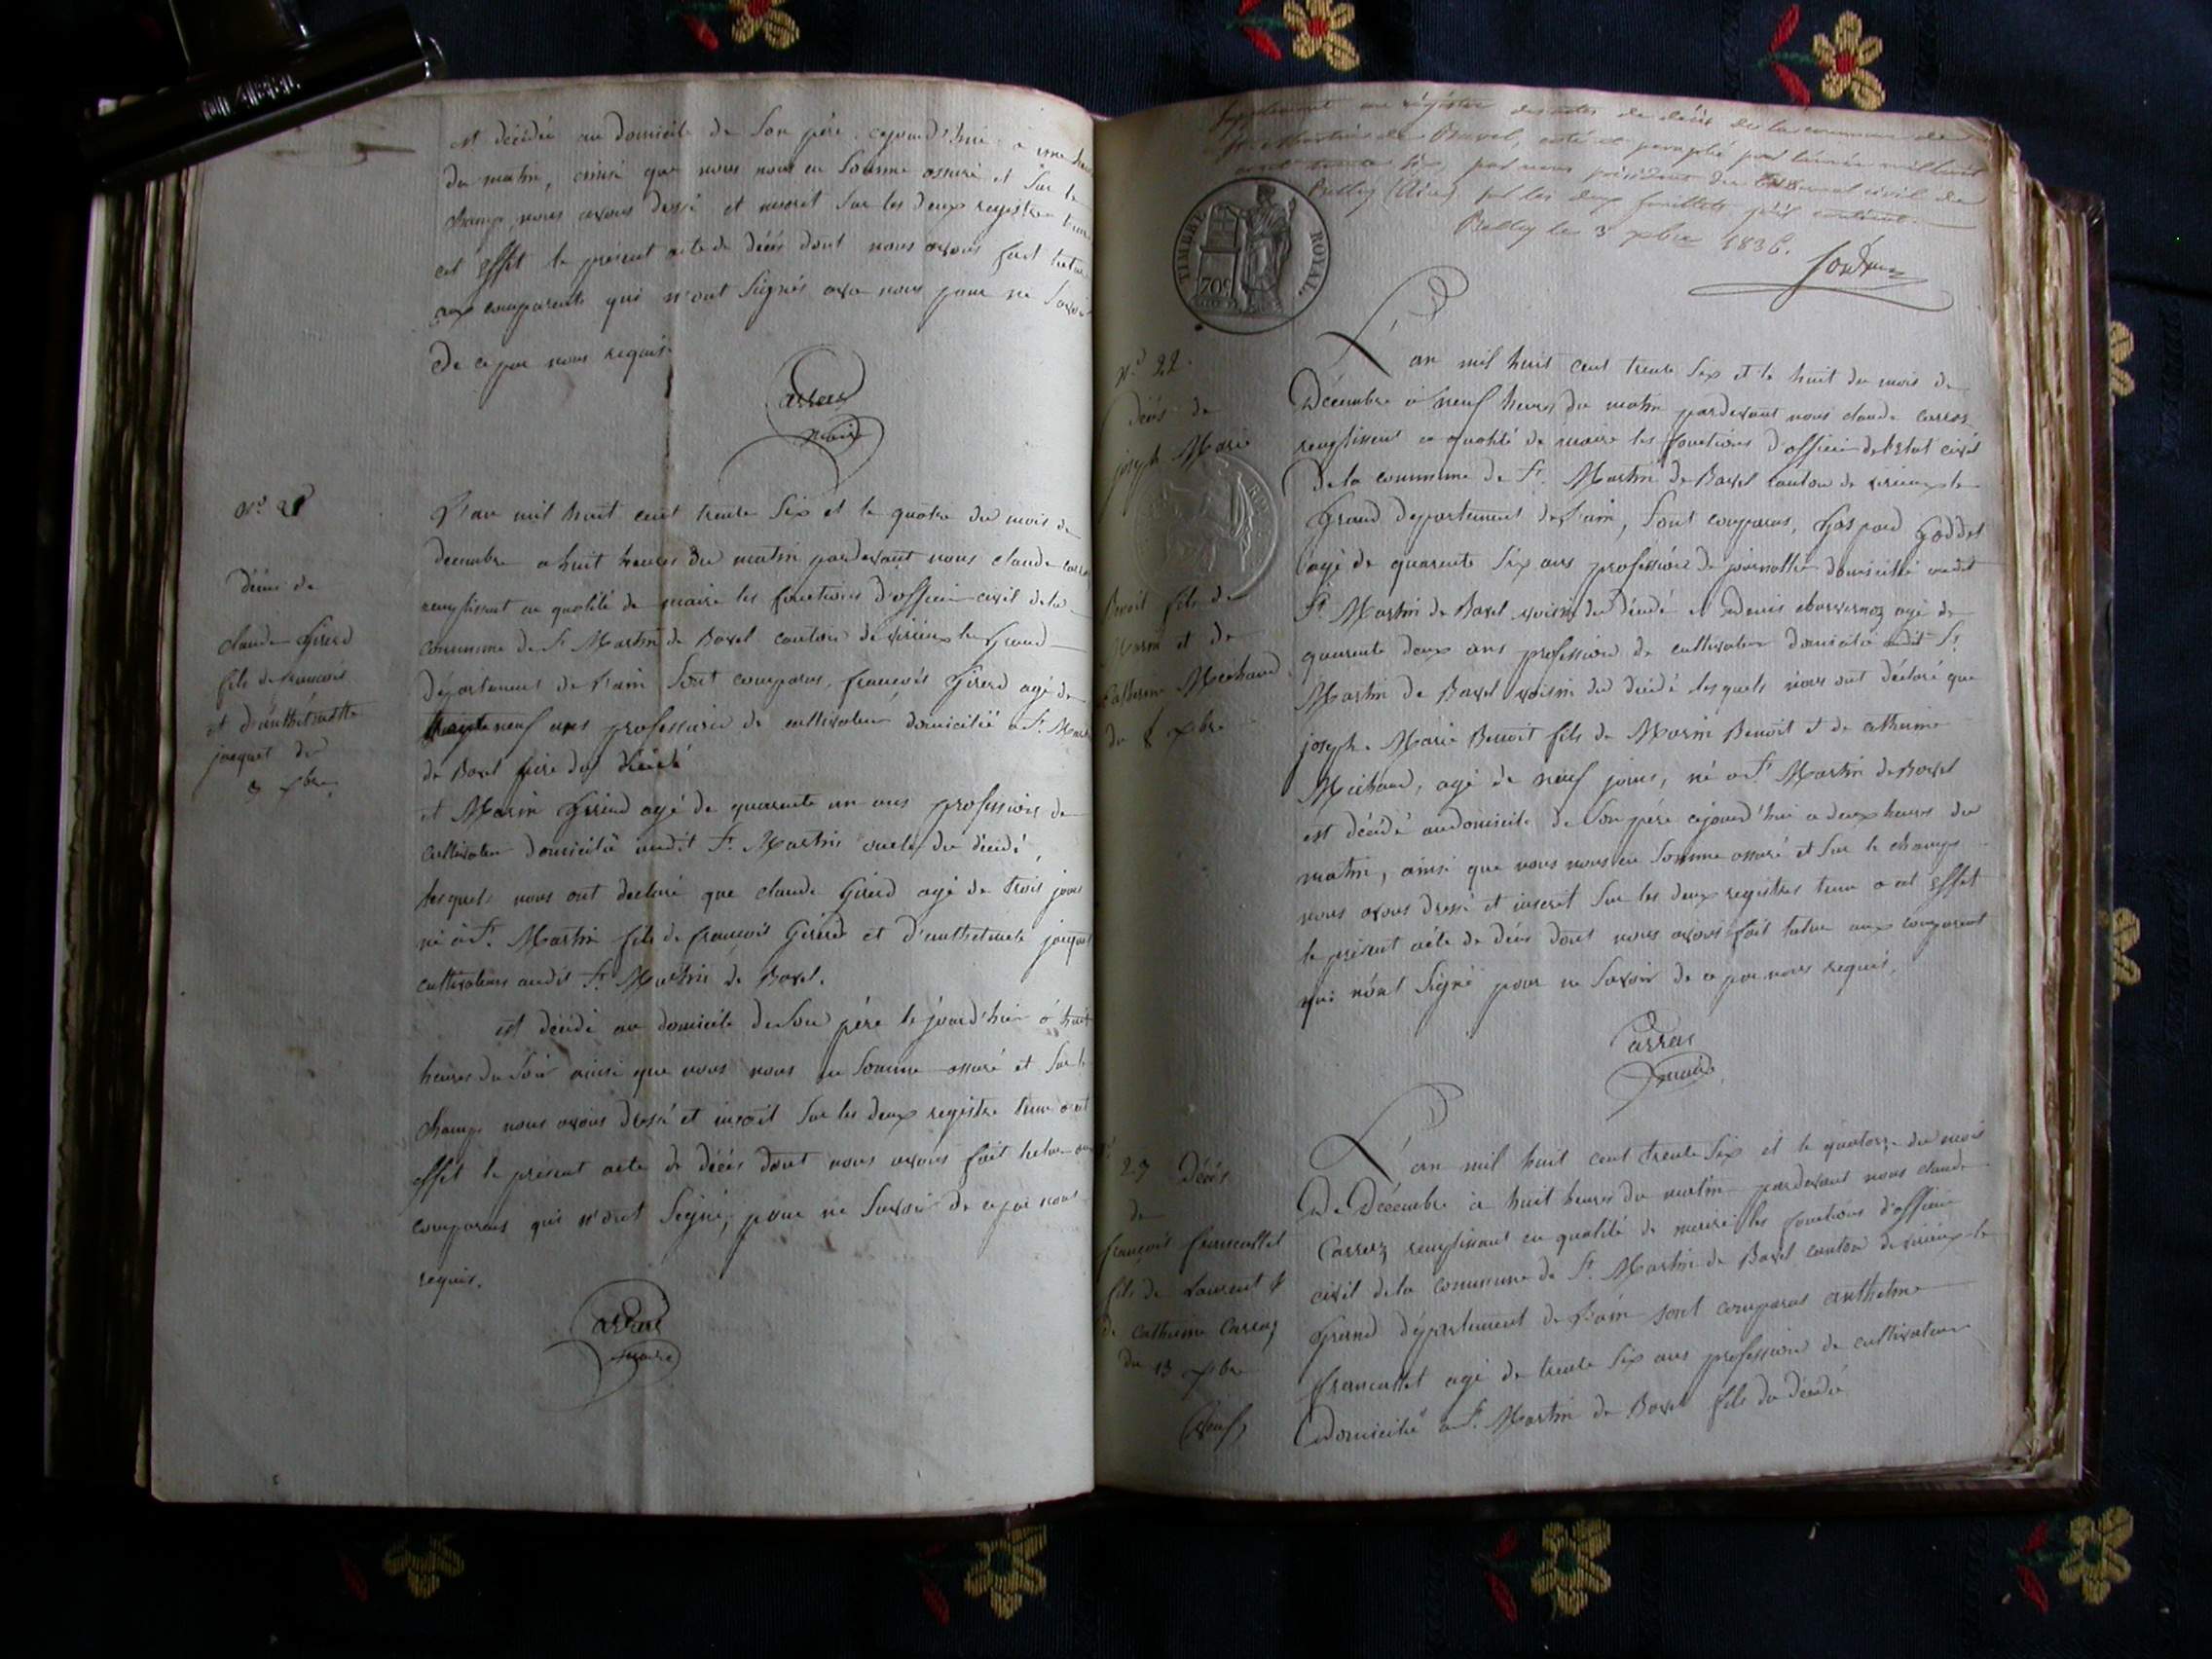 est décédée au domicile de Son père cejourd'hui a une heure
du matin, ainsi que nous nous en Somme assuré et Sur le
champ nous avons dressé et inscrit Sur les deux registre tenus
cet Effet le présent acte de décès dont nous avons fait lecture
aux comparants qui n'ont Signés avec nous pour ne Savoir
de ce par nous requis.
Carraz
maire
N° 21
décès de
claude Girerd
fils de francois
et d'anthelmette
jacquet du
3 xbre
L'an mil huit cent trente Six et le quatre du mois de
decembre a huit heures du matin pardevant nous claude
remplissant en qualité de maire les fonctions d'officier civil de la
commune de St Martin de Bavel canton de virieux le Grand
département de l'ain Sont comparus, françois Girerd agé de
neuf ans profession de cultivateur domicilié a St.
de Bavel père du décédé
et Marin Girerd agé de quarante un ans profession de
cultivateur domicilié audit St. Martin oncle du décédé,
lesquels nous ont declaré que claude Girerd agé de trois jours
né à St. Martin fils de françois Girerd et d'anthelmete jacquet
cultivateurs audit St Martin de Bavel.
est décédé au domicile de Son père le jourd'hui à huit
heures du Soir ainsi que nous nous en Somme assuré et Sur le
champ nous avons dressé et inscrit Sur les deux registre tenu a cet
effet le présent acte de décès dont nous avons fait lecture aux
comparans qui n'ont Signé, pour ne Savoir de ce par nous
requis.
Carraz
maire
Supplement au régistre des actes de décès de la commune de
St Martin de Bavel, coté et paraphé pour l'année mil huit
cent trente six, par nous président du Tribunal civil de
Belley (Ain) sur les deux feuillets qu'il contient.
Belley le 3 xbre 1836.
TIMBRE ROYAL
70c
N° 22.
décès de
joseph Marie
Benoit fils de
Marin et de
Catherine Michaud
du 8 xbre
L'an mil huit cent trente Six et le huit du mois de
Décembre à neuf heures du matin pardevant nous claude carraz
remplissant en qualité de maire les fonctions d'officier de l'Etat civil
de la commune de St. Martin de Bavel canton de virieux le
Grand département de l'ain, Sont comparus, Gaspard Goddet
agé de quarante Six ans profession de journallier domicilié audit
St. Martin de Bavel voisin du décédé et denis agé de
quarente deux ans profession de cultivateur domicilié audit St
Martin de Bavel voisin du décédé lesquels nous ont déclaré que
joseph Marie Benoit fils de Marin Benoit et de catherine
Michaud, agé de neuf jours, né a St Martin de Bavel
est décédé au domicile de Son père cejourd'hui a deux heures du
matin, ainsi que nous nous en Somme assuré et Sur le champ
nous avons dressé et inscrit Sur les deux registres tenu a cet Effet
le présent acte de décès dont nous avons fait lecture aux comparant
qui n'ont Signé pour ne Savoir de ce par nous requis.
Carraz
maire
23 Décès
de
françois francallet
fils de Laurent &
de Catherine Carraz
du 13 xbre
L'an mil huit cent trente Six et le quatorze du mois
De Décembre à huit heures du matin pardevant nous claude
Carraz remplissant en qualité de maire les fonctions d'officier
civil de la commune de St. Martin de Bavel canton de virieux le
Grand département de l'ain sont comparus anthelme
francallet agé de trente Six ans profession de cultivateur
Domicilié a St. Martin de Bavel fils du décédé